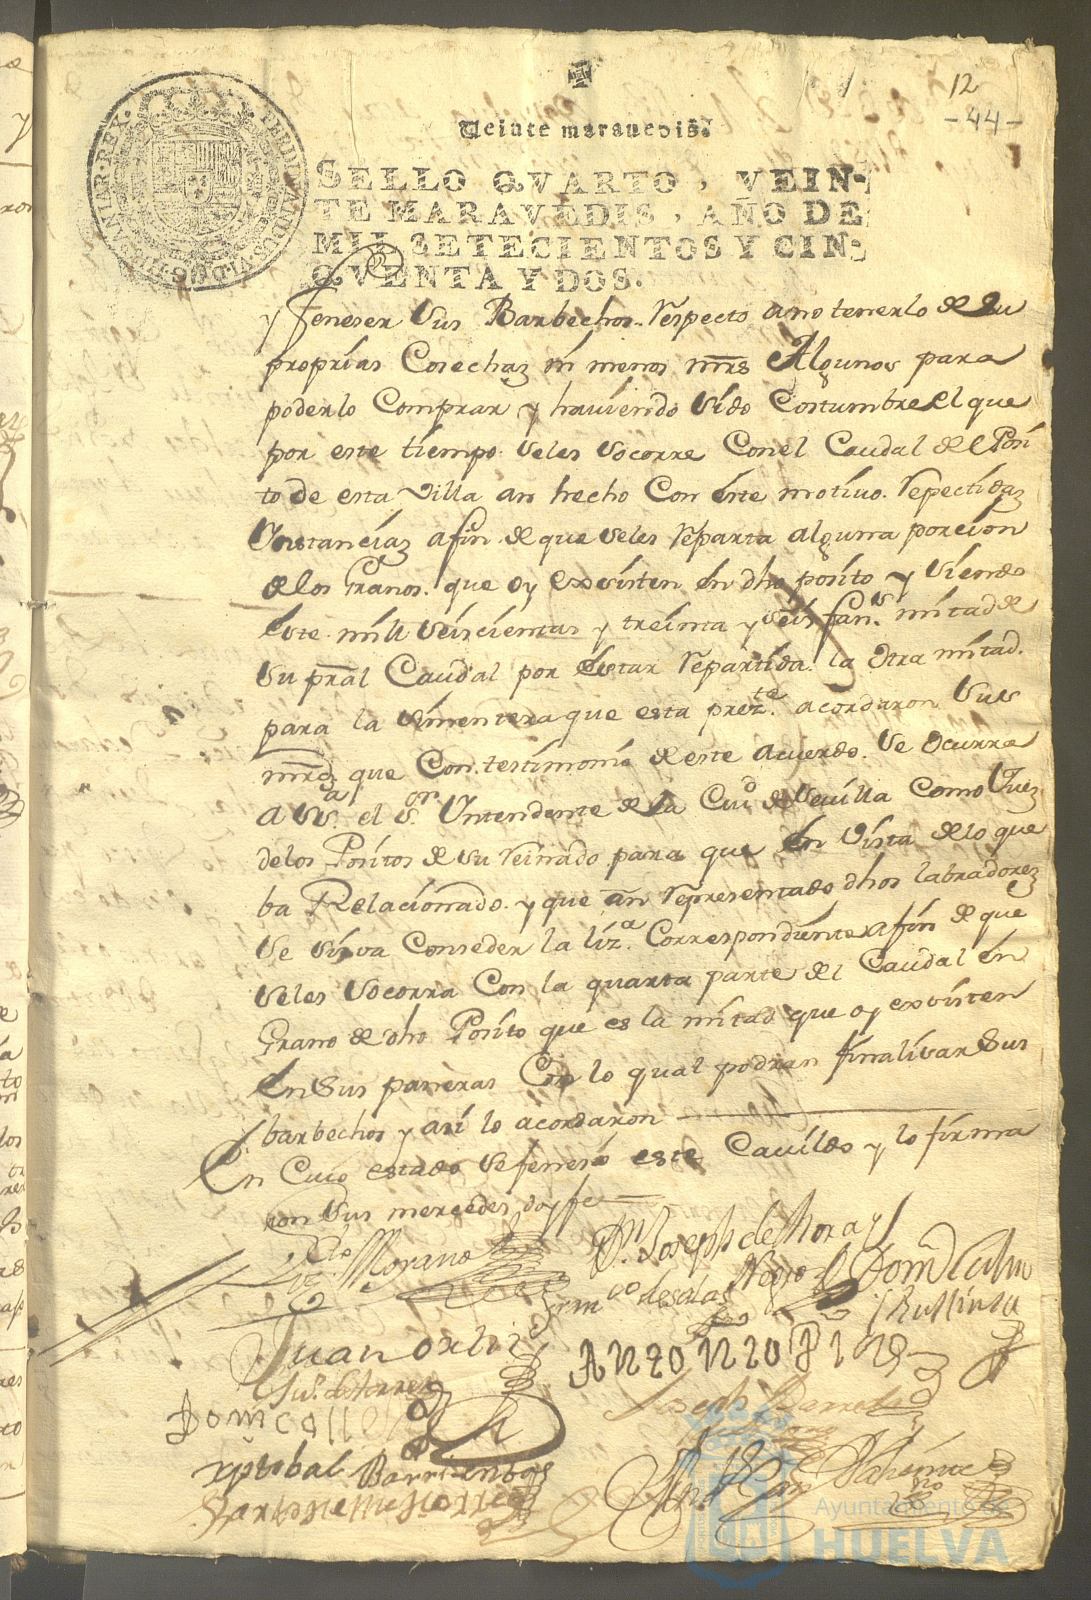 12
-44-
Veinte maravedis.
SELLO QVARTO, VEIN-
TE MARAVEDIS, AÑO DE
MIL SETECIENTOS Y CIN-
QVENTA Y DOS.
y feneser sus Barbechos. respecto a no tenerlo de su
proprias Cosechas ni menos mrs Algunos para
poderlo Comprar y haviendo sido Costumbre el que
por este tiempo seles socorre Con el Caudal del Posi
to de esta Villa an hecho Con este motivo repectidas
Instancias a fin de que seles reparta alguna porcion
de los Granos que oy exsisten en dho posito y siendo
este mill seiscientas y treinta y seis fans. mitad de
su pral Caudal por estar repartida la otra mitad
para la simentera que esta prezte. acordaron sus
mrds. que Con testimonio de este acuerdo se Ocurra
a Sa. el Sor. Yntendente de la Ciud de Sevilla Como Juez
de los Positos de su reinado para que en vista de lo que
ba Relacionado y que an representado dhos labradores
se sirva Conseder la liza. Correspondiente a fin de que
seles socorra Con la quarta parte del Caudal en
Grano de dho Posito que es la mitad que oy exsisten
en Sus paneras Con lo qual podran finalisar Sus
barbechos y asi lo acordaron
En Cuio estado se feneció este Cavildo y lo firma
ron sus mercedes doy fe
Morano
Dn. Joseph de Mora y
Negro
Dom
Juan
de torres
Joseph Barr
Xptobal Barrientos
Bartolome torres
Ayuntamiento de
HUELVA